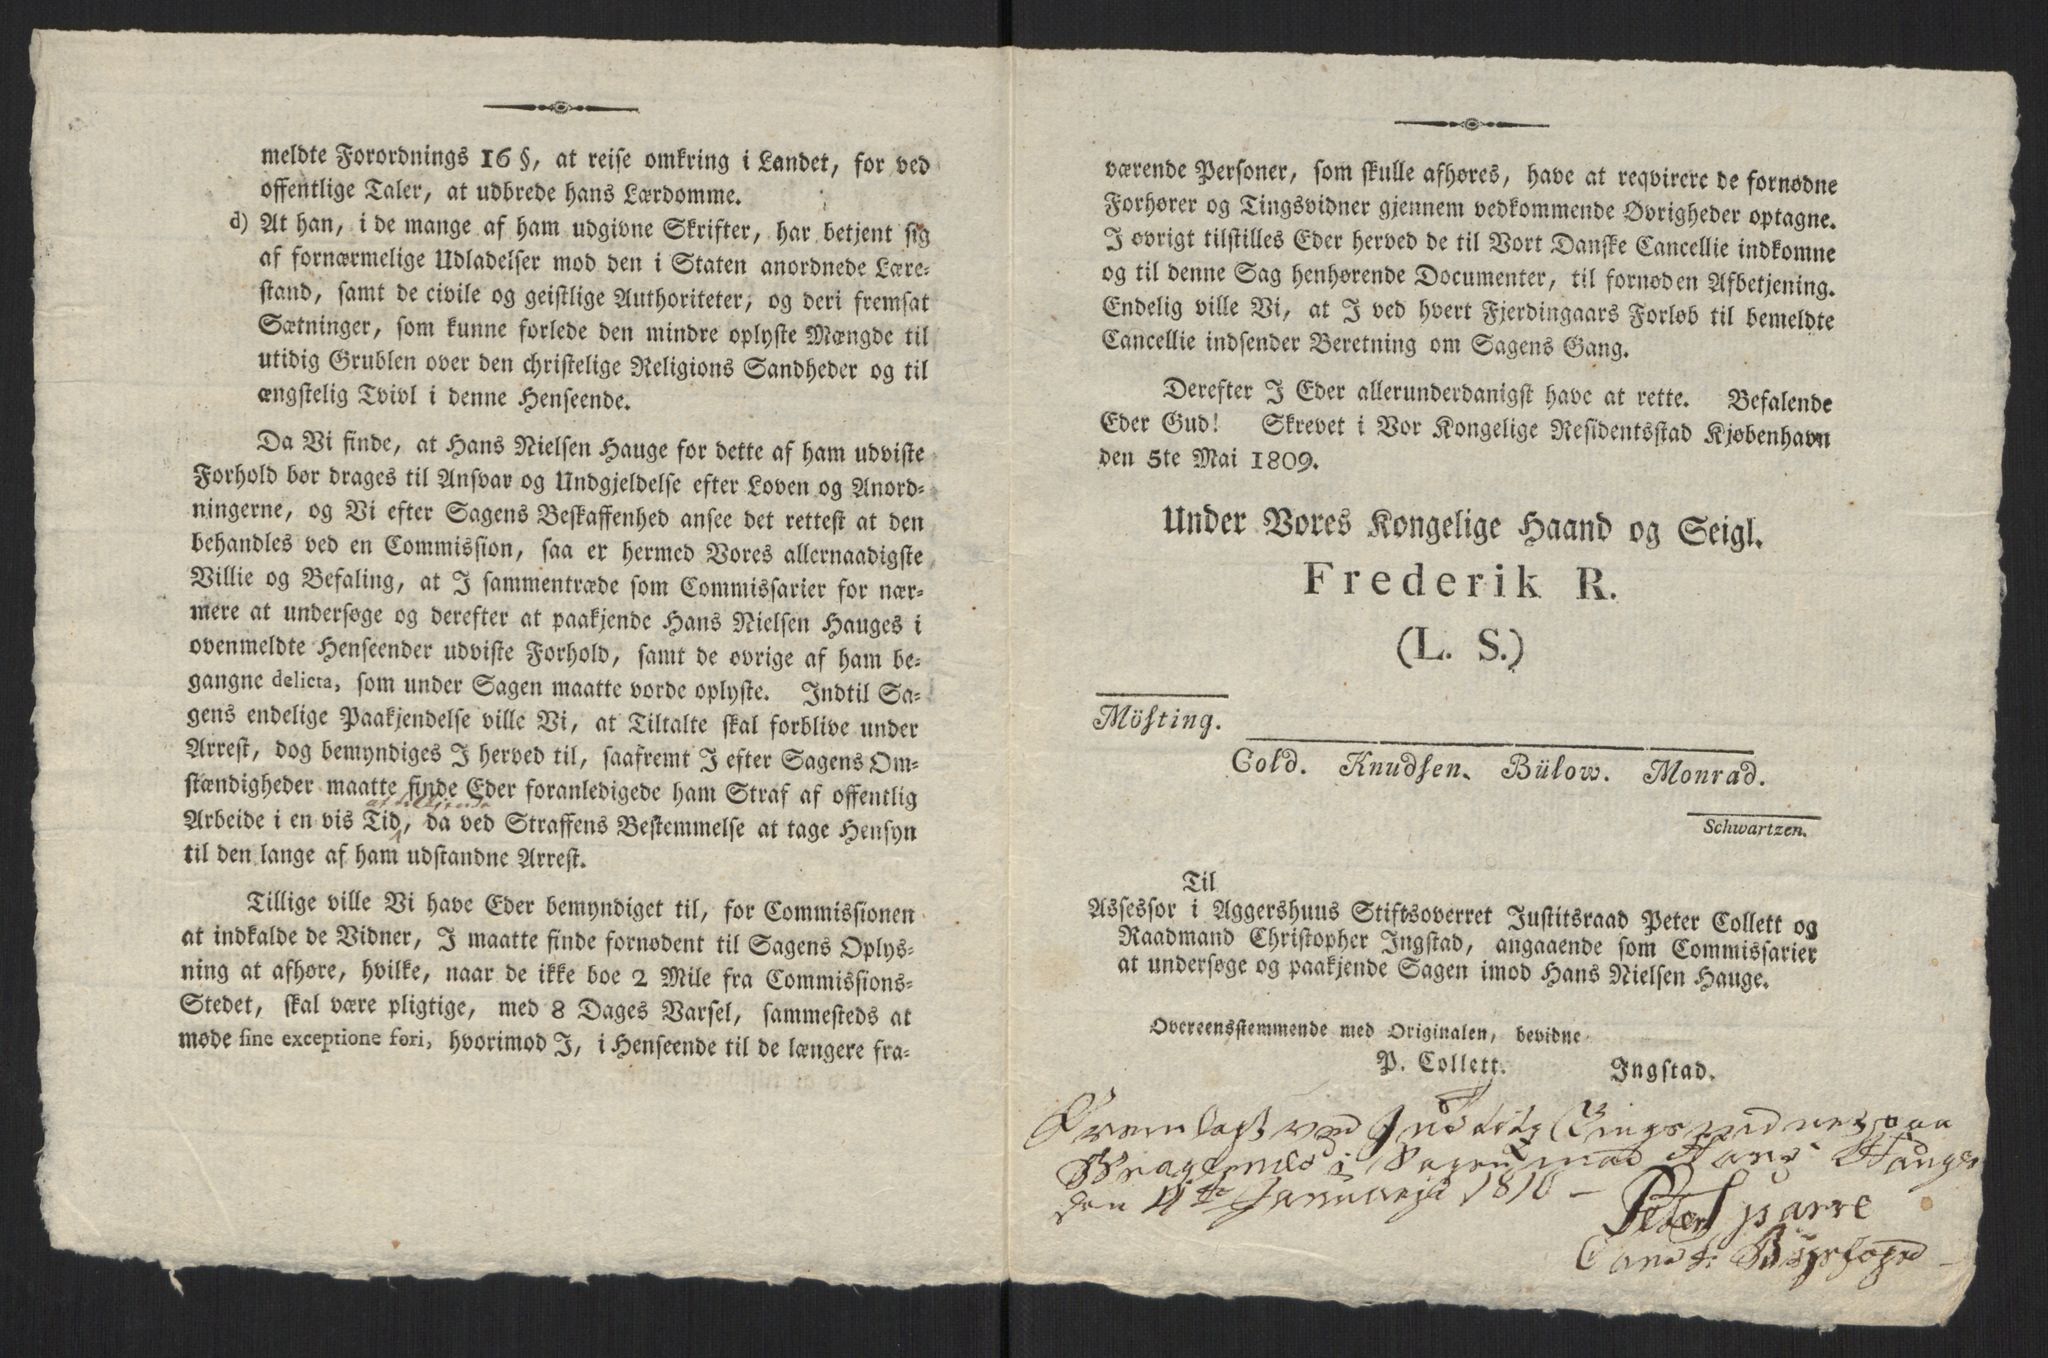 meldte Forordnings 16 §, at reise omkring i Landet, for ved
offentlige Taler, at udbrede hans Lærdomme.
d) At han, i de mange af ham udgivne Skrifter, har betjent sig
af fornærmelige Udladelser mod den i Staten anordnede Lære-
stand, samt de civile og geistlige Authoriteter, og deri fremsat
Sætninger, som kunne forlede den mindre oplyste Mængde til
utidig Grublen over den christelige Religions Sandheder og til
ængstelig Tvivl i denne Henseende.
Da Vi finde, at Hans Nielsen Hauge for dette af ham udviste
Forhold bør drages til Ansvar og Undgjeldelse efter Loven og Anord-
ningerne, og Vi efter Sagens Beskaffenhed ansee det rettest at den
behandles ved en Commission, saa er hermed Vores allernaadigste
Villie og Befaling, at I sammentræde som Commissarier for nær-
mere at undersøge og derefter at paakjende Hans Nielsen Hauges i
ovenmeldte Henseender udviste Forhold, samt de øvrige af ham be-
gangne delicta, som under Sagen maatte vorde oplyste. Indtil Sa-
gens endelige Paakjendelse ville Vi, at Tiltalte skal forblive under
Arrest, dog bemyndiges I herved til, saafremt I efter Sagens Om-
stændigheder maatte finde Eder foranledigede ham Straf af offentlig
at tilkjende
Arbeide i en vis Tid, da ved Straffens Bestemmelse at tage Hensyn
til den lange af ham udstandne Arrest.
Tillige ville Vi have Eder bemyndiget til, for Commissionen
at indkalde de Vidner, I maatte finde fornødent til Sagens Oplys-
ning at afhøre, hvilke, naar de ikke boe 2 Mile fra Commissions-
Stedet, skal være pligtige, med 8 Dages Varsel, sammesteds at
møde sine exceptione fori, hvorimod I, i Henseende til de længere fra-
værende Personer, som skulle afhøres, have at reqvirere de fornødne
Forhører og Tingsvidner gjennem vedkommende Øvrigheder optagne.
I øvrigt tilstilles Eder herved de til Vort Danske Cancellie indkomne
og til denne Sag henhørende Documenter, til fornøden Afbetjening.
Endelig ville Vi, at I ved hvert Fjerdingaars Forløb til bemeldte
Cancellie indsender Beretning om Sagens Gang.
Derefter I Eder allerunderdanigst have at rette. Befalende
Eder Gud! Skrevet i Vor Kongelige Residentsstad Kjøbenhavn
den 5te Mai 1809.
Under Vores Kongelige Haand og Seigl.
Frederik R.
(L. S.)
Mösting.
Cold. Knudsen. Bülow. Monrad.
Schwartzen.
Til
Assessor i Aggershuus Stiftsoverret Justitsraad Peter Collett og
Raadmand Christopher Ingstad, angaaende som Commissarier
at undersøge og paakjende Sagen imod Hans Nielsen Hauge.
Overeensstemmende med Originalen, bevidne
P. Collett. Ingstad.
Fremlagt ved Tingsvidnet paa
Bragernes i Sagen mod Hans Hauge
den 4de Januarii 1810 –
Peter Sparre
Const: Byefoged